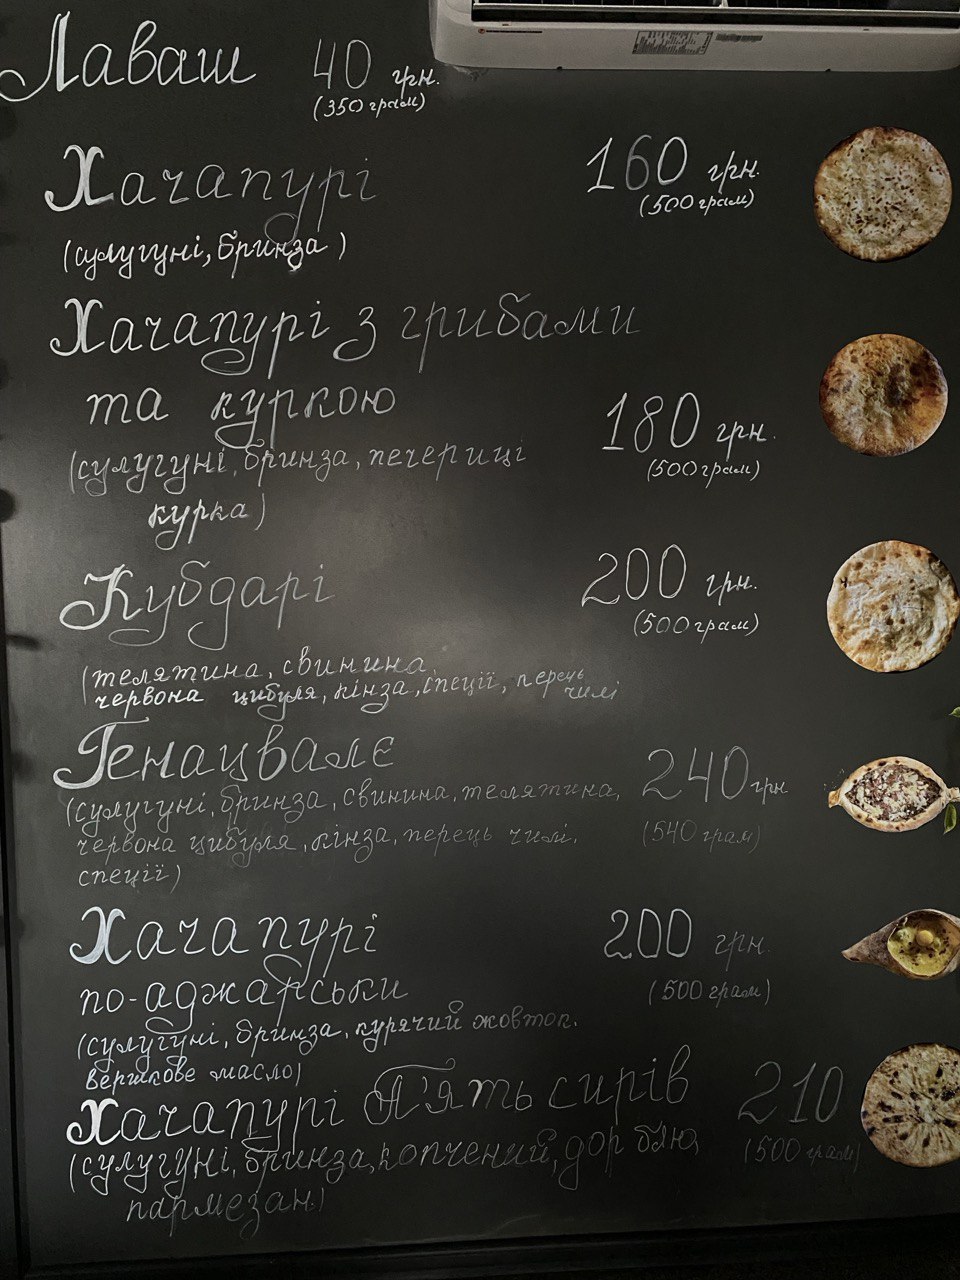 Лаваш 40 грн.
(350 грам)
Хачапурі 160 грн.
(500 грам)
(сулугуні, бринза)
Хачапурі з грибами
та куркою 180 грн.
(сулугуні, бринза, печериці (500 грам)
курка)
Кубдарі 200 грн.
(500 грам)
(телятина, свинина,
червона цибуля, кінза, спеції, перець
чилі
Генацвалє 240 грн
(сулугуні, бринза, свинина, телятина,
червона цибуля, кінза, перець чилі, (540 грам)
спеції)
Хачапурі 200 грн.
по-аджарськи (500 грам)
(сулугуні, бринза, курячий жовток,
вершкове масло)
Хачапурі П'ять сирів 210
(сулугуні, бринза, копчений, дор блю, (500 грам)
пармезан)